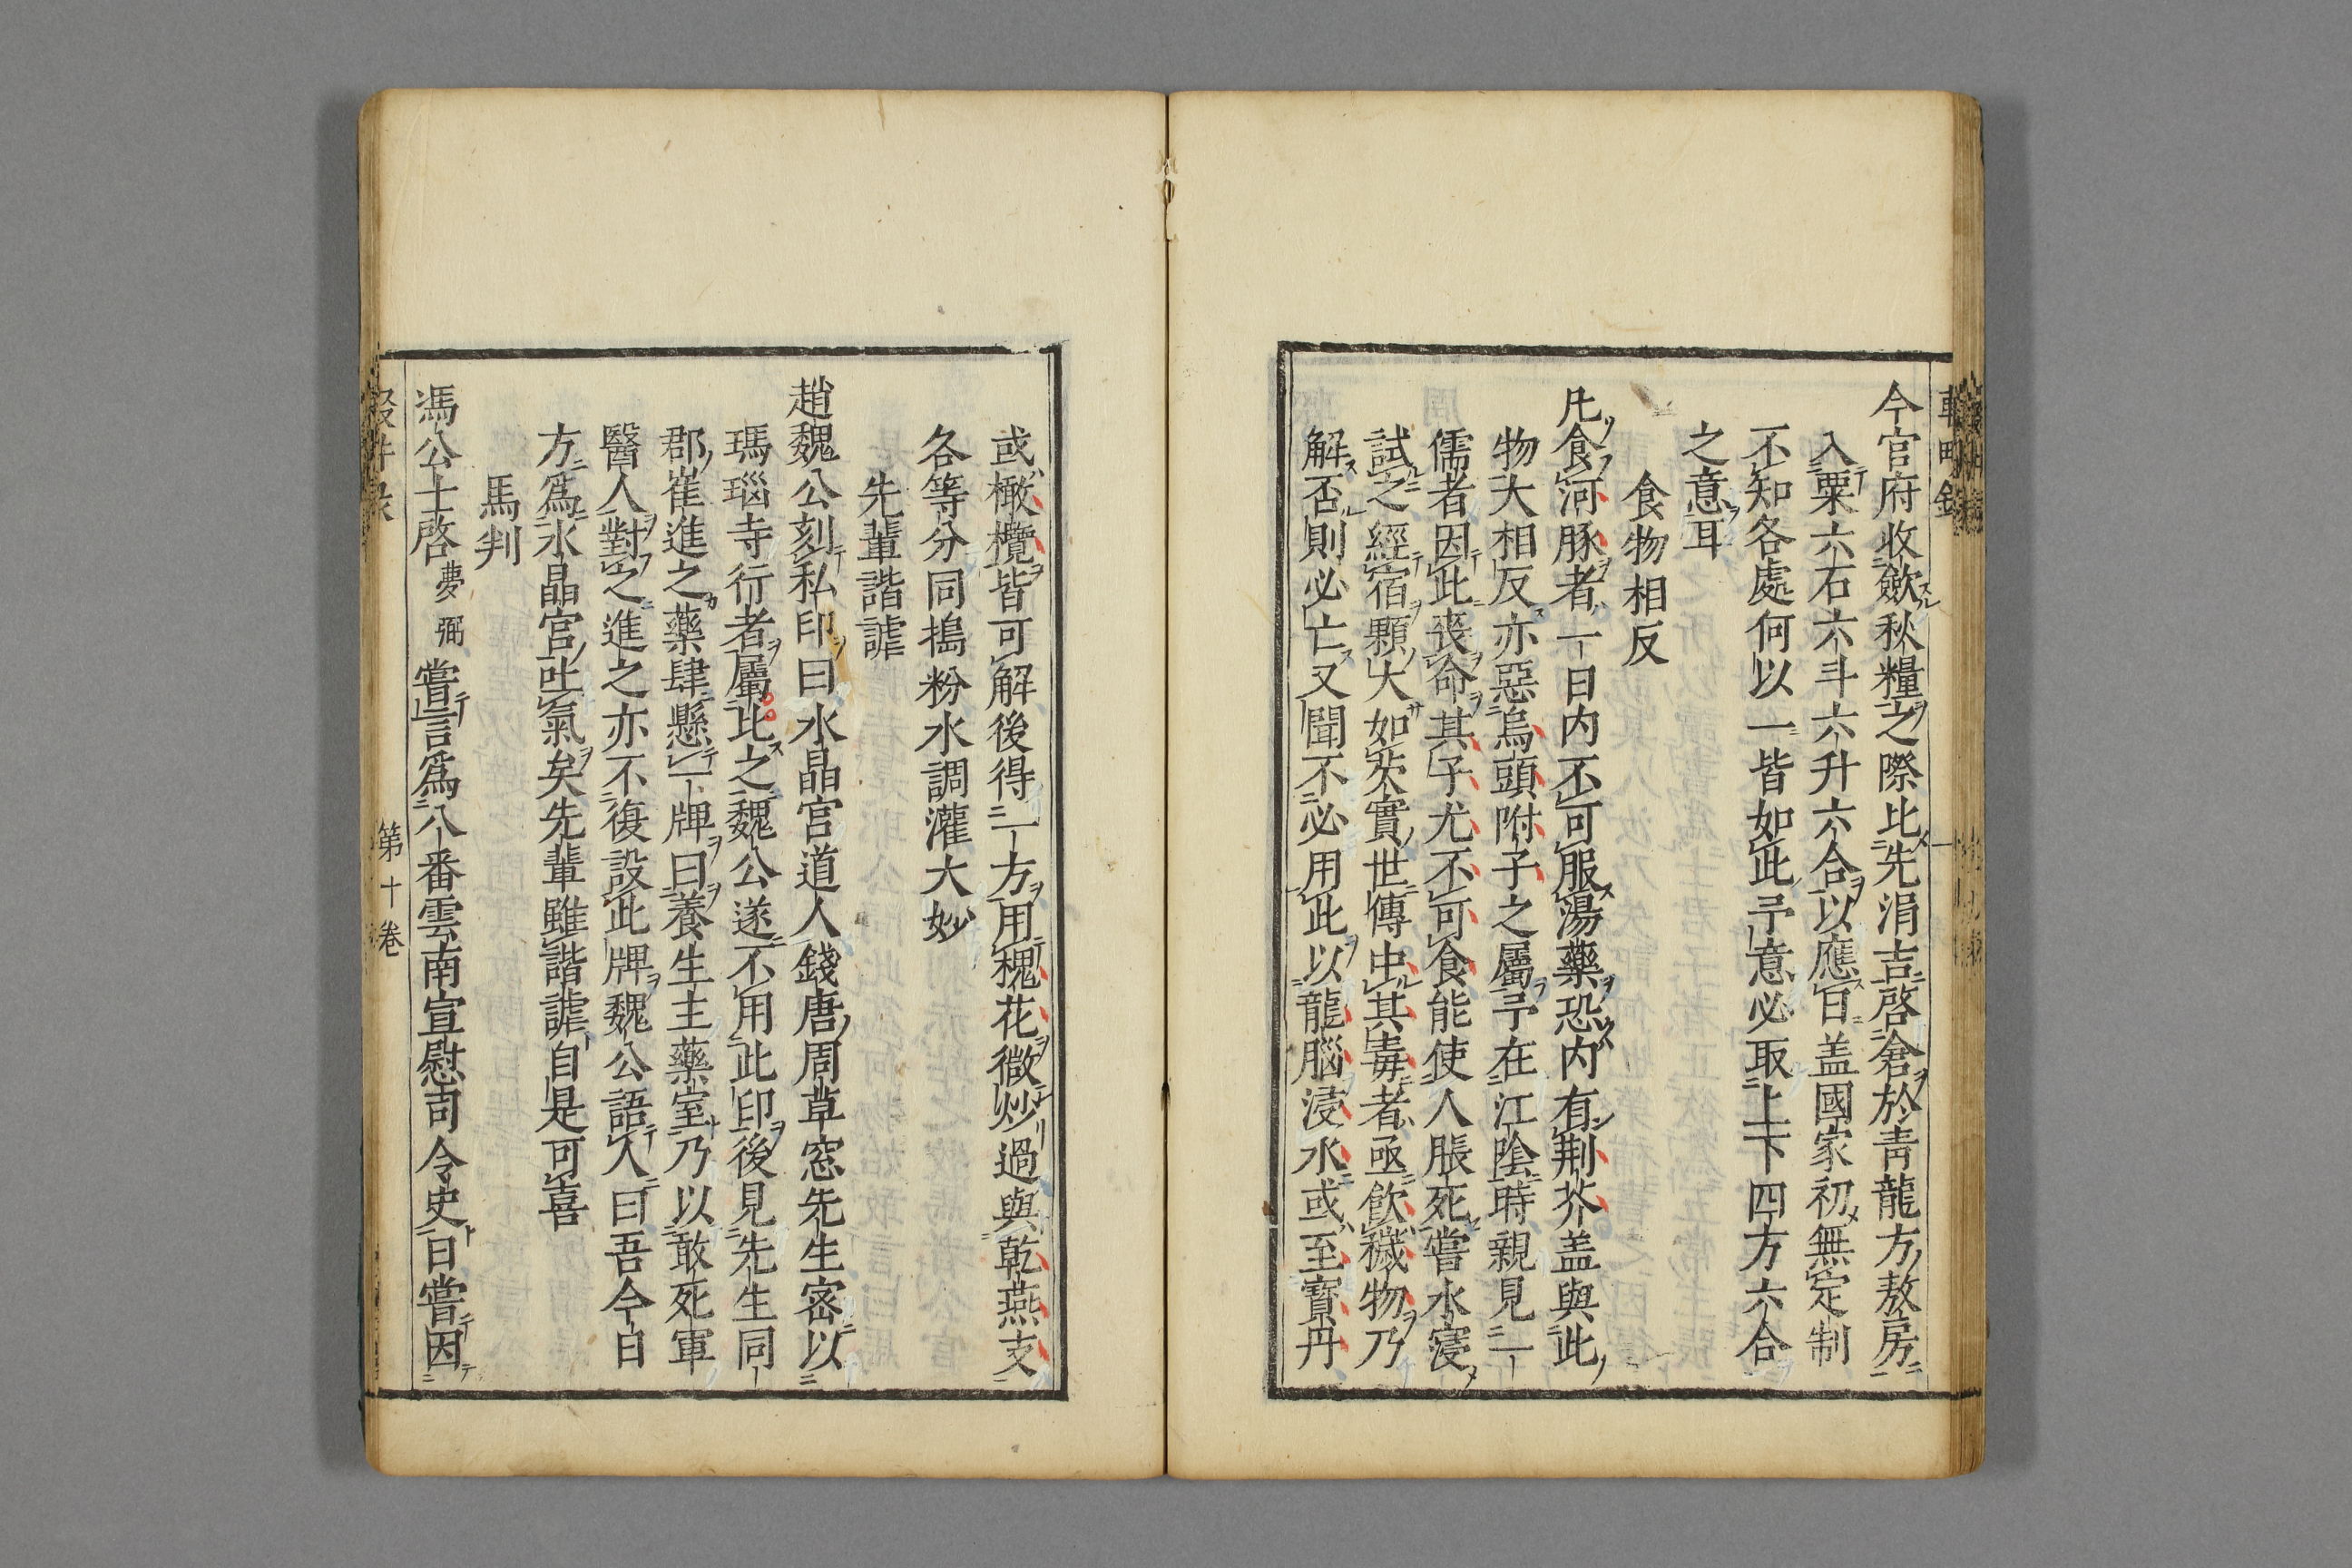 今官府收斂秋糧之際比先涓吉啓倉於青龍方敖房
入粟六石六斗六升六合以應日盖國家初無定制
不知各處何以一皆如此予意必取上下四方六合
之意耳
食物相反
凡食河豚者一日内不可服湯藥恐内有荆芥盖與此
物大相反亦惡烏頭附子之屬予在江陰時親見一
儒者因此丧命其子尤不可食能使人脹死嘗水寖
試之經宿顆大如芡實世傳中其毒者亟飲穢物乃
解否則必亡又聞不必用此以龍腦浸水或至寳丹
或橄欖皆可解後得一方用槐花微炒過與乾燕支
各等分同搗粉水調灌大妙
先輩諧謔
趙魏公刻私印曰水晶宮道人錢唐周草窓先生密以
瑪瑙寺行者屬比之魏公遂不用此印後見先生同
郡崔進之藥肆懸一牌曰養生主藥室乃以敢死軍
醫人對之進之亦不復設此牌魏公語人曰吾今日
方爲水晶宮吐氣矣先輩雖諧謔自是可喜
馬判
馮公士啓夢弼嘗言爲八番雲南宣慰司令史日嘗因
第十卷